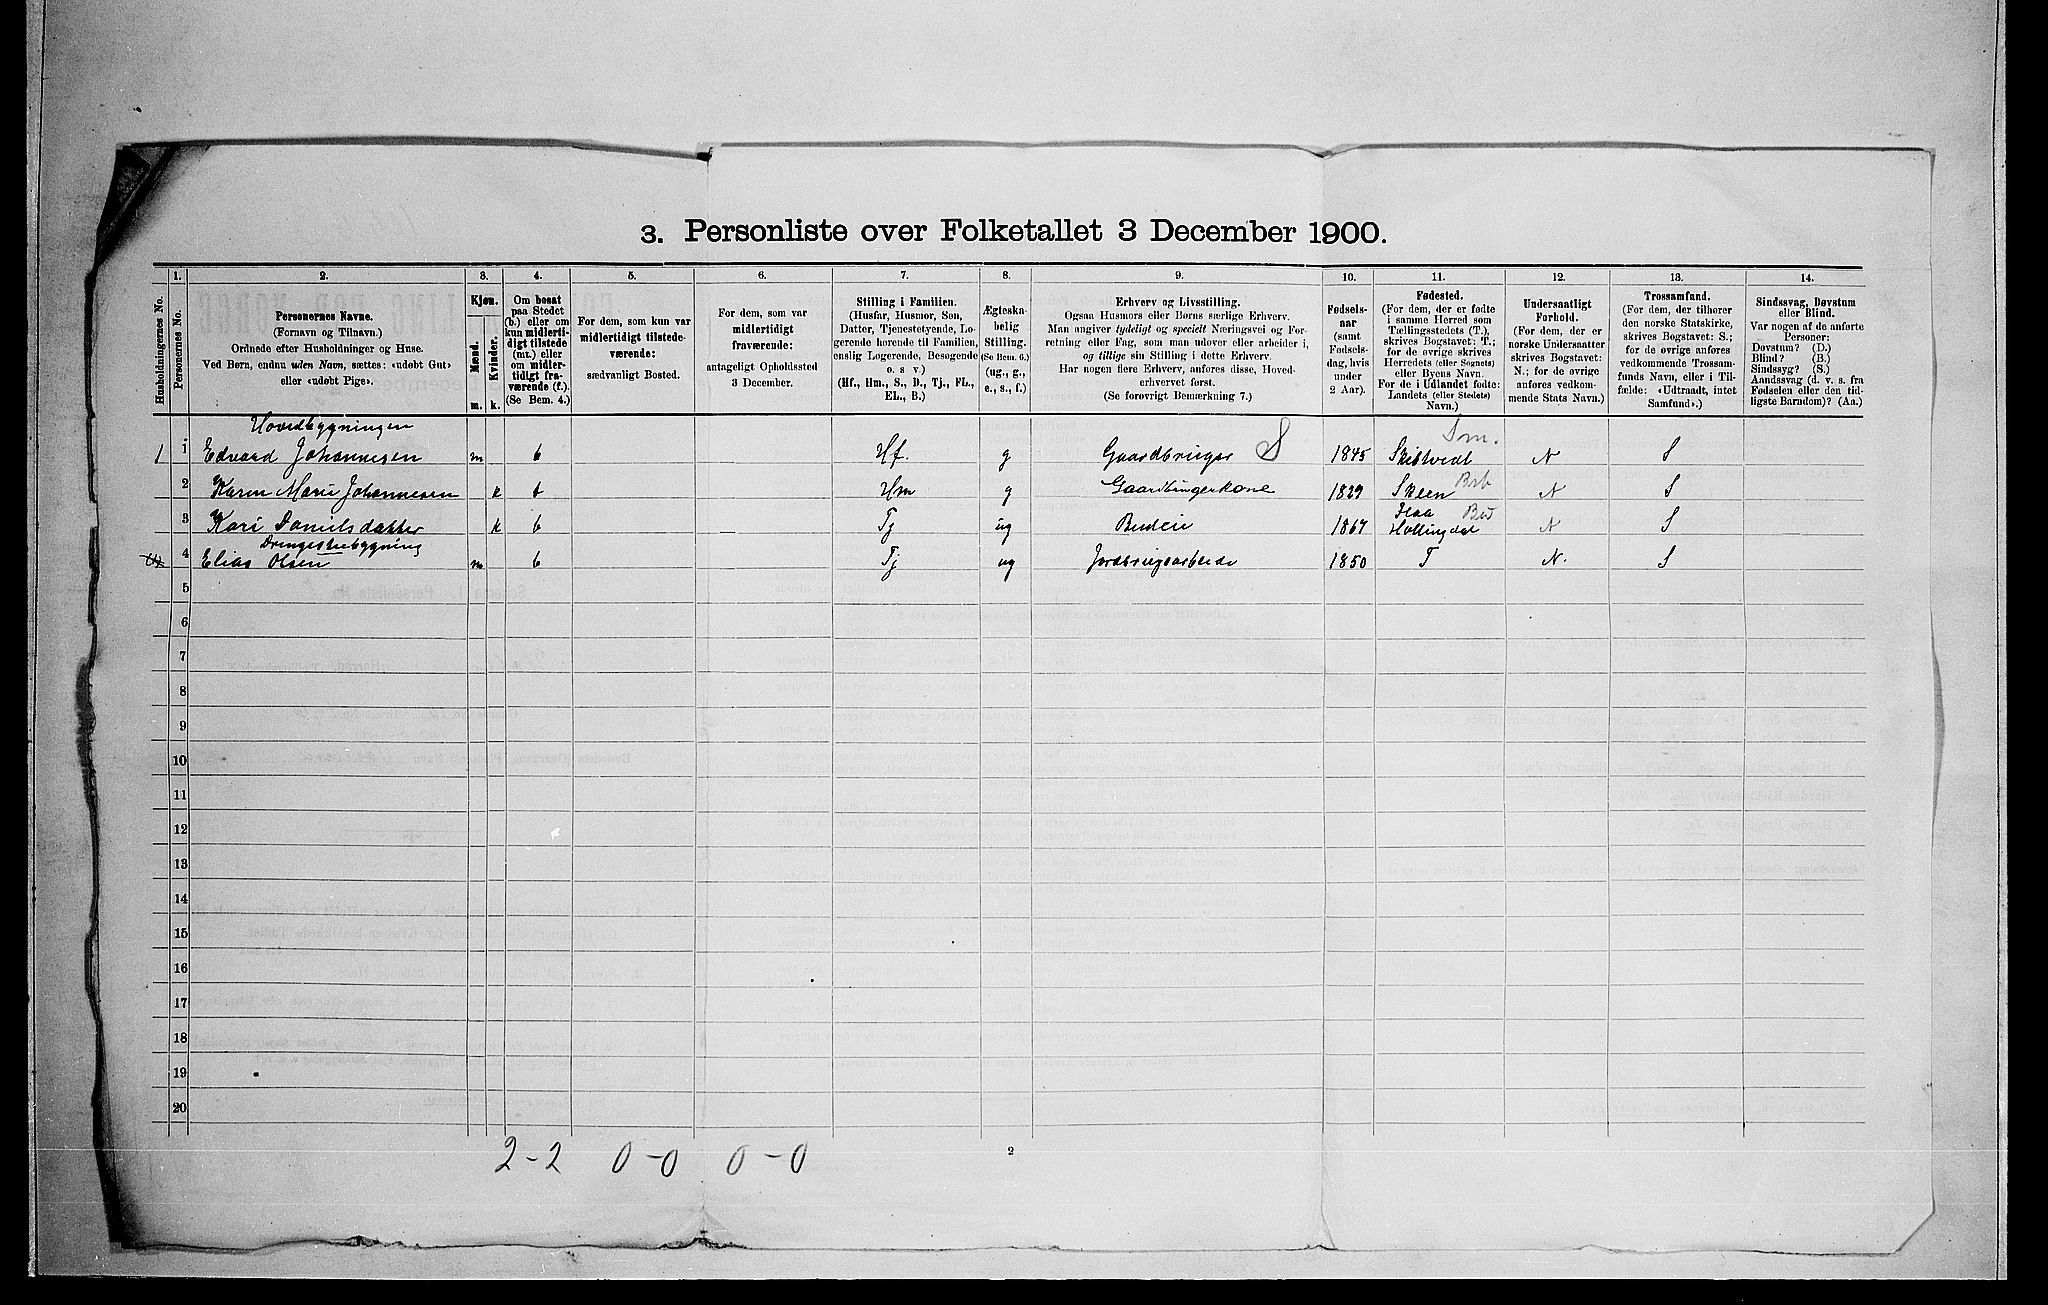 3. Personliste over Folketallet 3 December 1900.
1. 2. 3. 4. 5. 6. 7. 8. 9. 10. 11. 12. 13. 14.
Husholdningernes No.
Personernes No.
Personernes Navne.
(Fornavn og Tilnavn.)
Ordnede efter Husholdninger og Huse.
Ved Børn, endnu uden Navn, sættes: «udøbt Gut»
eller «udøbt Pige».
Kjøn.
Mænd.
Kvinder.
m. k.
Om bosat
paa Stedet
(b.) eller om
kun midlerti-
digt tilstede
(mt.) eller
om midler-
tidigt fra-
værende (f.).
(Se Bem. 4.)
For dem, som kun var
midlertidigt tilstede-
værende:
sædvanligt Bosted.
For dem, som var
midlertidigt
fraværende:
antageligt Opholdssted
3 December.
Stilling i Familien.
(Husfar, Husmor, Søn,
Datter, Tjenestetyende, Lo-
gerende hørende til Familien,
enslig Logerende, Besøgende
o. s. v.)
(Hf., Hm., S., D., Tj., FL.,
EL., B.)
Ægteska-
belig
Stilling.
(Se Bem. 6.)
(ug., g.,
e., s., f.)
Erhverv og Livsstilling.
Ogsaa Husmors eller Børns særlige Erhverv.
Man angiver tydeligt og specielt Næringsvei og For-
retning eller Fag, som man udøver eller arbeider i,
og tillige sin Stilling i dette Erhverv.
Har nogen flere Erhverv, anføres disse, Hoved-
erhvervet først.
(Se forøvrigt Bemærkning 7.)
Fødsels-
aar
(samt
Fødsels-
dag, hvis
under
2 Aar).
Fødested.
(For dem, der er fødte
i samme Herred som
Tællingsstedets (T.),
skrives Bogstavet: T.;
for de øvrige skrives
Herredets (eller Sognets)
eller Byens Navn.
For de i Udlandet fødte:
Landets (eller Stedets)
Navn.)
Undersaatligt
Forhold.
(For dem, der er
norske Undersaatter
skrives Bogstavet:
N.; for de øvrige
anføres vedkom-
mende Stats Navn.)
Trossamfund.
(For dem, der tilhører
den norske Statskirke,
skrives Bogstavet: S.;
for de øvrige anføres
vedkommende Trossam-
funds Navn, eller i Til-
fælde: «Udtraadt, intet
Samfund».)
Sindssvag, Døvstum
eller Blind.
Var nogen af de anførte
Personer:
Døvstum? (D.)
Blind? (B.)
Sindssyg? (S.)
Aandssvag (d. v. s. fra
Fødselen eller den tid-
ligste Barndom)? (Aa.)
Hovedbygningen
1 1 Edvard Johannesen m b Hf. g Gaardbruger S 1845 Skibtvedt Sm. N S
2 Karen Marie Johannesen k b Hm g Gaardbrugerkone 1829 Skeen Brb N S
3 Kari Danielsdatter k b Tj ug Budeie 1867 Flaa Hallingdal Bu N S
Drengestuebygning
4 Elias Olsen m b Tj ug Jordbrugsarbeide 1850 T N. S
5
6
7
8
9
10
11
12
13
14
15
16
17
18
19
20
2-2 0-0 0-0
2